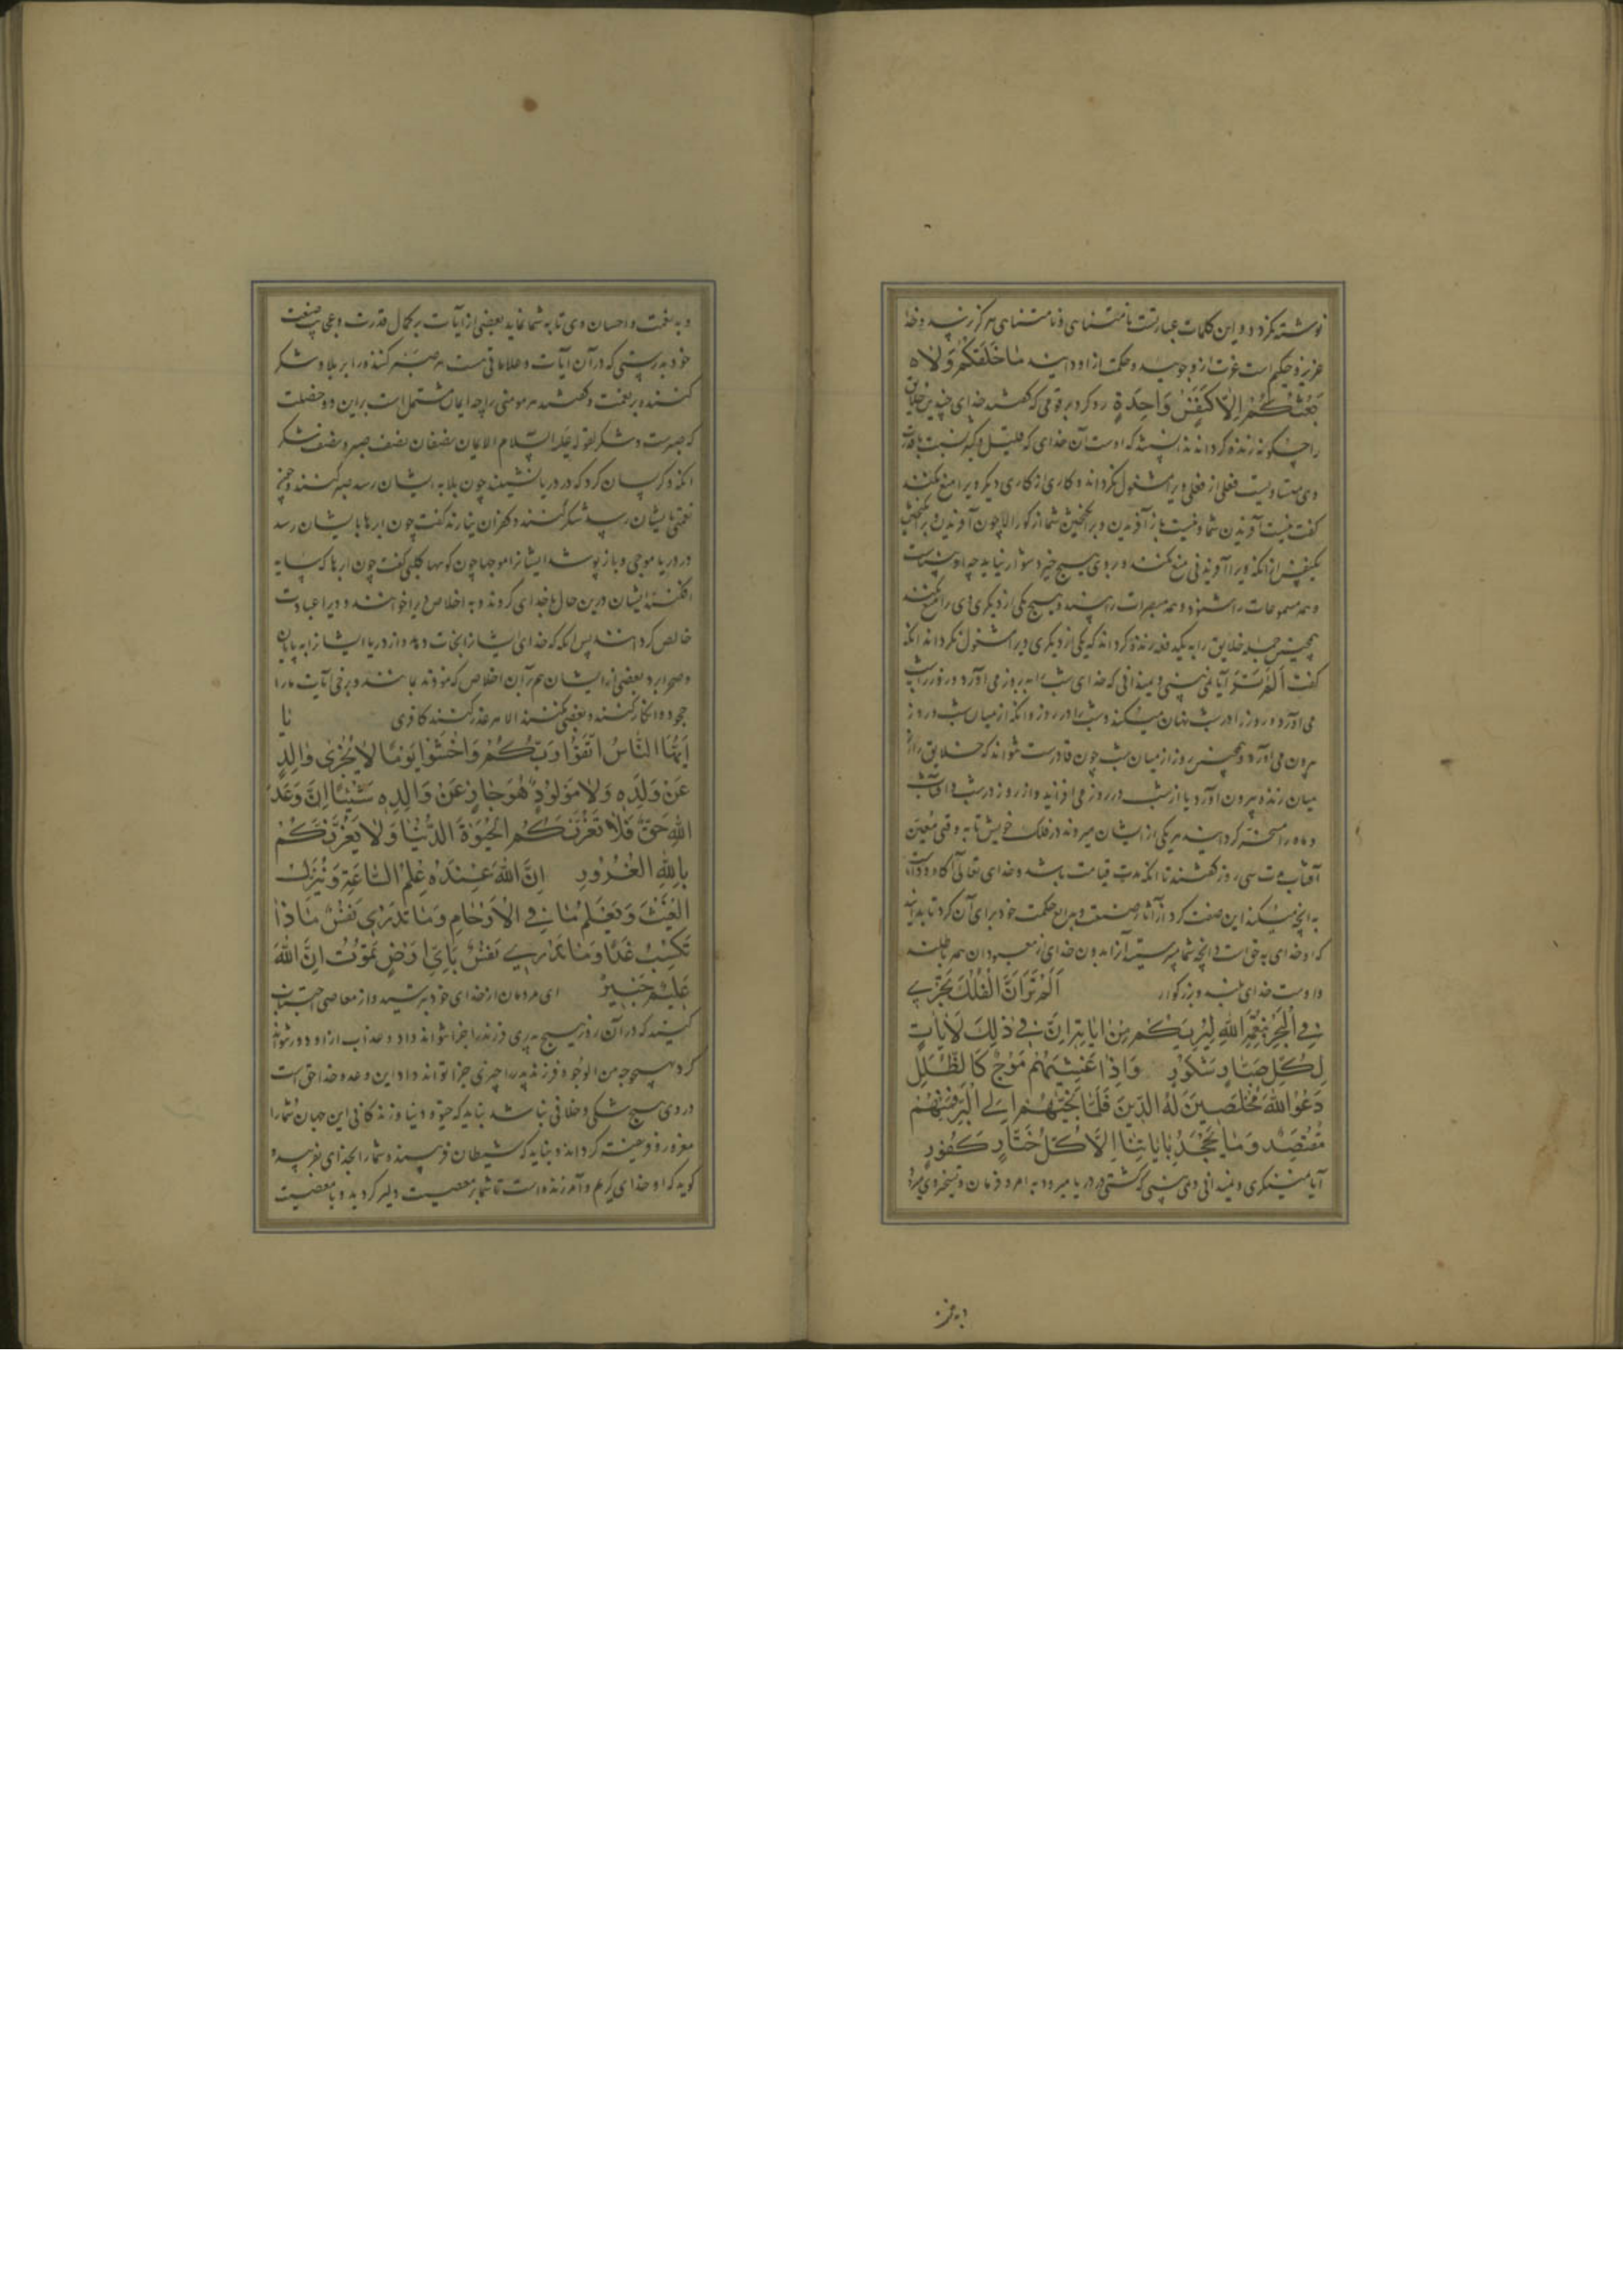 نوشته نكردد و اين كلمات عبارتست نامتناهى و نامتناهى هركز نرسد و خدا
عزيز و حكيم است عزت ازو جوييد و حكمت از او دانيد مَا خَلَقَكُمْ وَلَا
بَعْثُكُمْ اِلَّا كَنَفْسٍ وَاحِدَةٍ رد كرد بر قومى كه كفتند خداى چندين خلايق
را چكونه زنده كرداند اوست آن خداى كه قليل و كثير نسبت با قدرت
وى متساويست فعلى از فعلى ويرا مشغول نكرداند و كارى از كارى ديكر ويرا منع نكند
كفت نيست آفريدن شما و نيست باز آفريدن و برانكيختن شما از كور الا چون آفريدن و برانكيختن
يكنفس از انكه ويرا آفريدنى منع نكند و بر وى هيچ چيز دشوار نيايد چه او شنواست
و همه مسموعات را شنود و همه مبصرات را بيند و هيچ يكى از ديكرى وى را منع نكند
همچنين جمله خلايق را به يكدفعه زنده كرداند كه يكى از ديكرى ويرا مشغول نكرداند انكه
كفت اَلَمْ تَرَ آيا نمى بينى و نميدانى كه خداى شب را به روز مى آورد و روز را به شب
مى آورد و روز را در شب پنهان ميكند و شب را در روز و انكه از ميان شب روز
بيرون مى آورد و همچنين روز از ميان شب چون قادرست تواند كه خلايق را از
ميان زنده بيرون آورد يا از شب در روز مى افزايد و از روز در شب و آفتاب
و ماه را مسخر كردانيد هر يكى از ايشان ميروند در فلك خويش تا به وقتى معين
آفتاب مدت سى روز كفتند تا انكه مدت قيامت باشد و خداى تعالى آكاه و داناست
به انچه ميكنيد اين صفت كرد از آثار صنعت و بدايع حكمت خود براى آن كرد تا بدانيد
كه او خداى به حق است و انچه شما ميپرستيد آنرا بدون خداى از معبودان همه باطلند
و اوست خداى بلند و بزركوار اَلَمْ تَرَ اَنَّ الْفُلْكَ تَجْرِي
فِي الْبَحْرِ بِنِعْمَةِ اللهِ لِيُرِيَكُمْ مِنْ اٰيَاتِهِ اِنَّ فِي ذٰلِكَ لَاٰيَاتٍ
لِكُلِّ صَبَّارٍ شَكُورٍ وَاِذَا غَشِيَهُمْ مَوْجٌ كَالظُّلَلِ
دَعَوُا اللهَ مُخْلِصِينَ لَهُ الدِّينَ فَلَمَّا نَجّٰيهُمْ اِلَى الْبَرِّ فَمِنْهُمْ
مُقْتَصِدٌ وَمَا يَجْحَدُ بِاٰيَاتِنَا اِلَّا كُلُّ خَتَّارٍ كَفُورٍ
آيا نمينكرى و نميدانى و نمى بينى كه كشتى در دريا ميرود به امر و فرمان و تسخير وى
و به نعمت
و به نعمت و احسان وى تا به شما نمايد بعضى از آيات بر كمال قدرت و عجايب صنعت
خود بدرستى كه در آن آيات و علاماتى هست هر صبر كننده را بر بلا و شكر
كننده بر نعمت و كفتند هر مومنى را چه ايمان مشتمل است بر اين دو خصلت
كه صبرست و شكر لقوله عليه السلام الايمان نصفان نصف صبر و نصف شكر
انكه ذكر كسان كرد كه در دريا نشينند چون بلا به ايشان رسد صبر كنند و چون
نعمتى بايشان رسد شكر كنند و كفران نيارند كفت چون ابرها بايشان رسد
در دريا موجى و باز پوشد ايشانرا موجها چون كوهها كلبى كفت چون ابرها كه سايه
افكند ايشان درين حال با خداى كروند و به اخلاص ويرا خوانند و ويرا عبادت
خالص كردانند پس انكه كه خداى ايشانرا نجات دهد و از دريا ايشانرا به بيابان
و صحرا برد بعضى از ايشان هم بر آن اخلاص كه نموده اند بمانند و برخى آيات ما را
جحود و انكار كنند و بعضى نكنند الا هر غدر كننده كافرى يَا
اَيُّهَا النَّاسُ اتَّقُوا رَبَّكُمْ وَاخْشَوْا يَوْمًا لَا يَجْزِى وَالِدٌ
عَنْ وَلَدِهِ وَلَا مَوْلُودٌ هُوَ جَازٍ عَنْ وَالِدِهِ شَيْئًا اِنَّ وَعْدَ
اللهِ حَقٌّ فَلَا تَغُرَّنَّكُمُ الْحَيٰوةُ الدُّنْيَا وَلَا يَغُرَّنَّكُمْ
بِاللهِ الْغَرُورُ اِنَّ اللهَ عِنْدَهُ عِلْمُ السَّاعَةِ وَيُنَزِّلُ
الْغَيْثَ وَيَعْلَمُ مَا فِي الْاَرْحَامِ وَمَا تَدْرِي نَفْسٌ مَاذَا
تَكْسِبُ غَدًا وَمَا تَدْرِي نَفْسٌ بِاَيِّ اَرْضٍ تَمُوتُ اِنَّ اللهَ
عَلِيمٌ خَبِيرٌ اى مردمان از خداى خود بترسيد و از معاصى اجتناب
كنيد كه در آن روز هيچ پدرى فرزند را جزا نتواند داد و عذاب از او دور نتواند
كرد بهيچ وجه من الوجوه و فرزند پدر را چيزى جزا نتواند داد اين وعده خدا حق است
در وى هيچ شكى و خلافى نباشد نبايد كه حيوة دنيا و زندكانى اين جهان شما را
مغرور و فريفته كرداند و نبايد كه شيطان فريبنده شما را بخداى بفريبد و
كويد كه او خداى كريم و آمرزنده است تا شما بر معصيت دلير كرديد و با معصيت